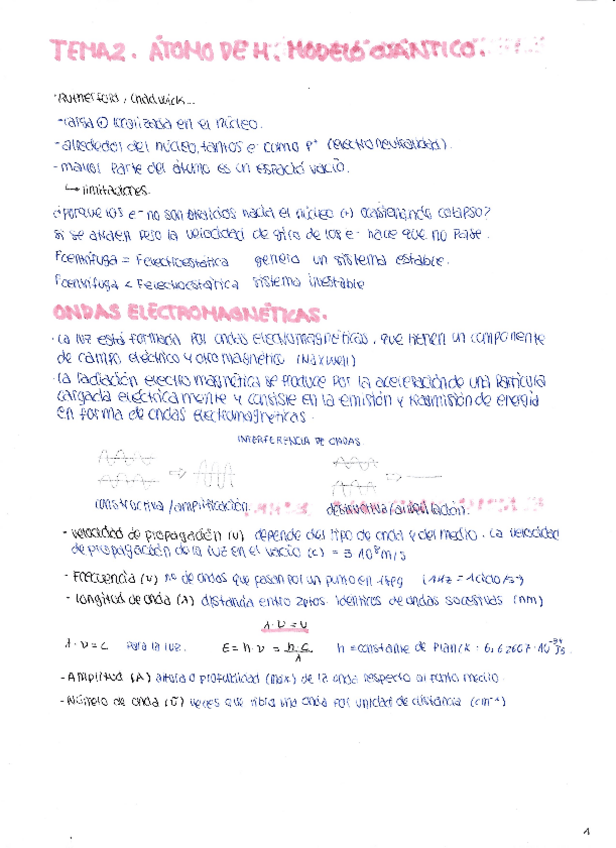 TEMA 2. ÁTOMO DE H. MODELO CUÁNTICO.
·Rutherford, Chadwick...
-carga ⊕ localizada en el núcleo.
-alrededor del núcleo, tantos e⁻ como p⁺ (electroneutralidad).
-mayor parte del átomo es un espacio vacío.
↳ limitaciones.
¿Porque los e⁻ no son atraídos hacia el núcleo (+) ocasionando colapso?
Si se atraen pero la velocidad de giro de los e⁻ hace que no pase.
Fcentrífuga = Felectrostática genera un sistema estable.
Fcentrífuga < Felectrostática sistema inestable
ONDAS ELECTROMAGNÉTICAS.
·La luz está formada por ondas electromagnéticas, que tienen un componente
de campo eléctrico y otro magnético (Maxwell)
·La radiación electromagnética se produce por la aceleración de una partícula
cargada eléctricamente y consiste en la emisión y trasmisión de energía
en forma de ondas electromagnéticas.
INTERFERENCIA DE ONDAS
constructiva/amplificación. destructiva/anulación.
- Velocidad de propagación (v) depende del tipo de onda y del medio. La velocidad
de propagación de la luz en el vacío (c) = 3 10⁸ m/s
- Frecuencia (ν) nº de ondas que pasan por un punto en 1 seg (1Hz = 1ciclo/s)
- Longitud de onda (λ) distancia entre 2 ptos. idénticos de ondas sucesivas (nm)
λ·ν = v
λ·ν = c para la luz. E = h·ν = h·c/λ h = constante de Planck: 6,62607·10⁻³⁴ JS.
- Amplitud (A) altura o profundidad (max) de la onda respecto al punto medio.
- Número de onda (ν̄) veces que vibra una onda por unidad de distancia (cm⁻¹)
1